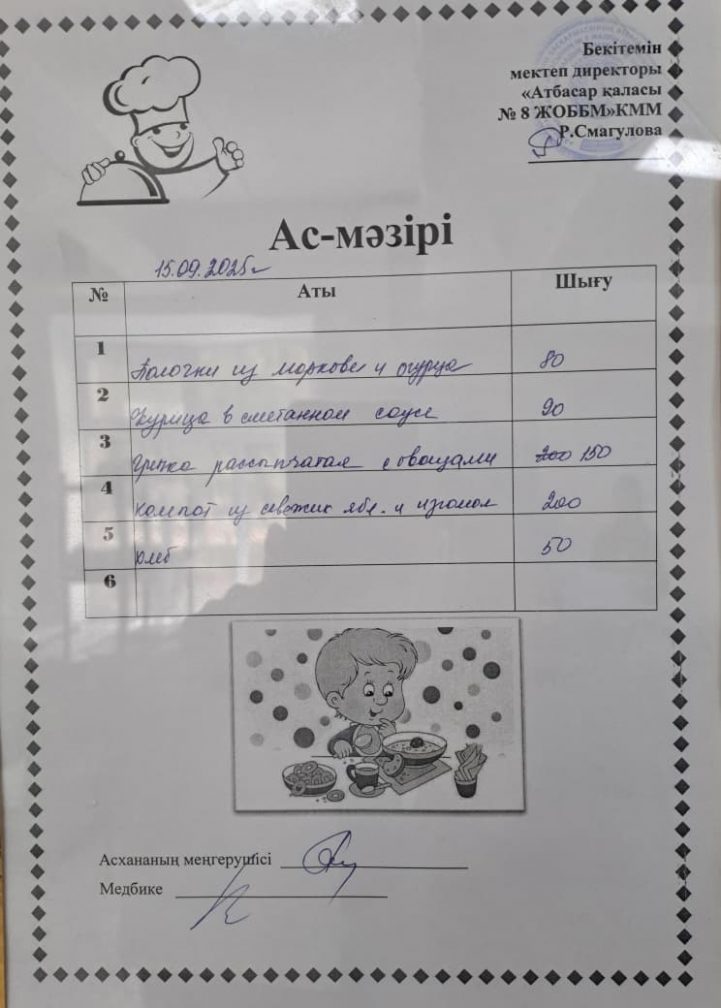 Бекітемін
мектеп директоры
«Атбасар қаласы
№ 8 ЖОББМ»КММ
Р.Смагулова
Ас-мәзірі
15.09.2025г
№ Аты Шығу
1 из моркови и огурца 80
2 Курица в сметанном соусе 90
3 Гречка рассыпчатая с овощами 200 150
4 Компот из свежих ябл. и изюмом 200
5 Хлеб 50
6
Асхананың меңгерушісі
Медбике